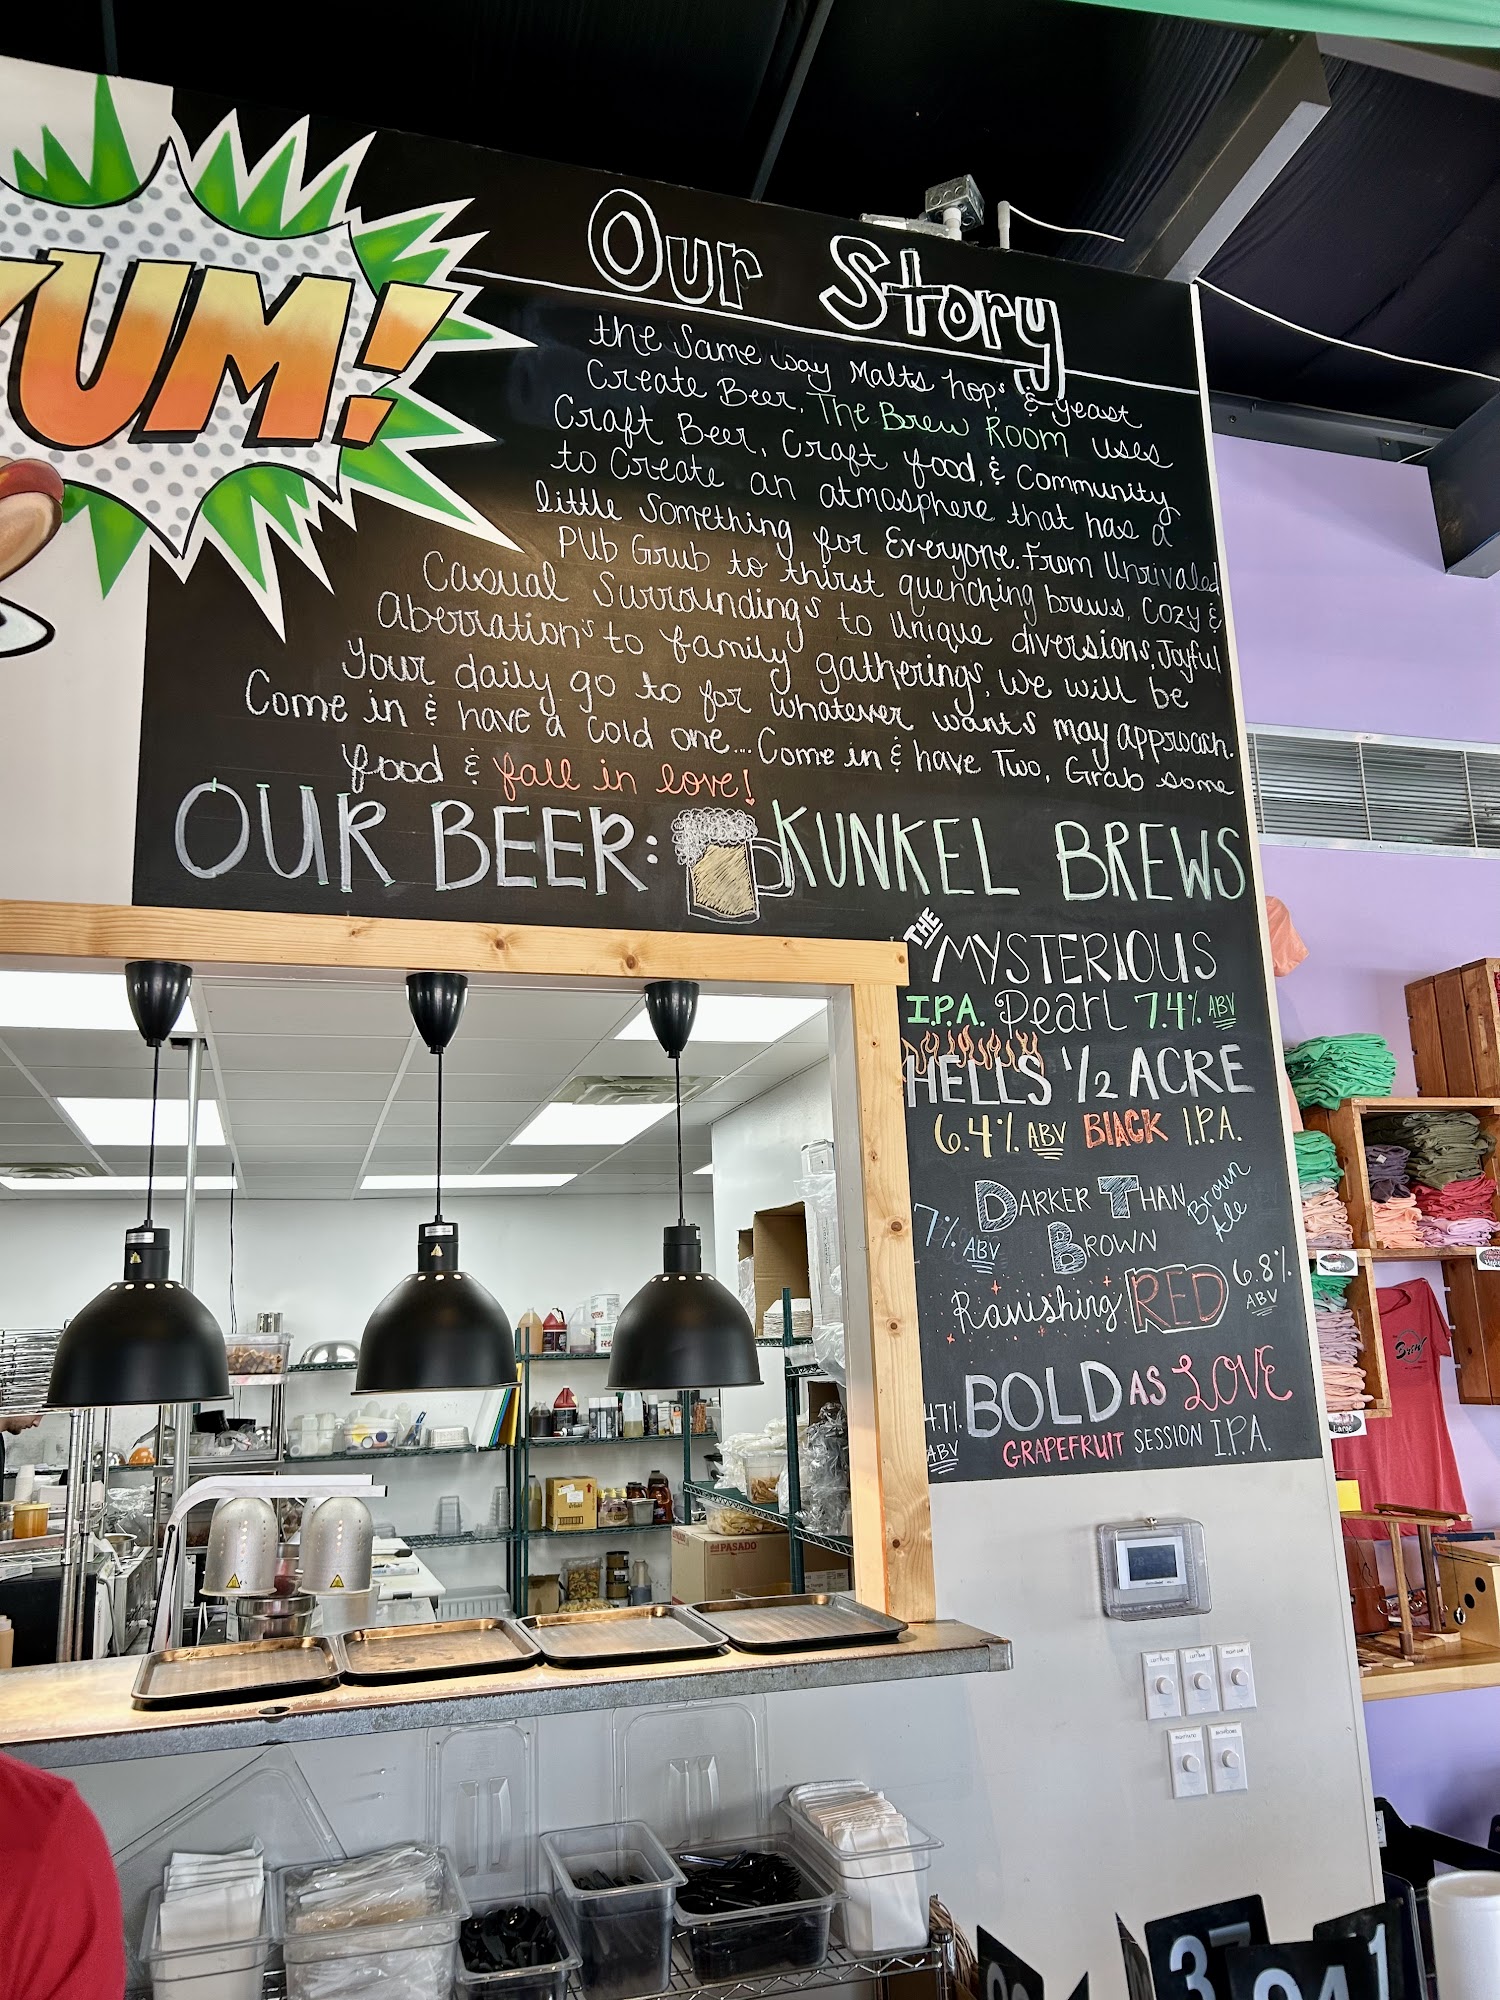 YUM!
Our Story
the Same way Malts hops & yeast
Create Beer, The Brew Room uses
Craft Beer, Craft food, & Community
to Create an atmosphere that has a
little Something for Everyone. From Unrivaled
PUb Grub to thirst quenching brews, Cozy &
Casual Surroundings to Unique diversions, Joyful
Aberration's to family gatherings, we will be
Your daily go to for whatever wants may approach.
Come in & have a Cold one... Come in & have Two, Grab some
food & fall in love!
OUR BEER: KUNKEL BREWS
THE MYSTERIOUS
I.P.A. Pearl 7.4% ABV
HELLS 1/2 ACRE
6.4% ABV BlACK I.P.A.
DARKER THAN
Brown Ale
7% ABV BROWN
Ravishing RED 6.8% ABV
BOLD AS LOVE
4.7% ABV GRAPEFRUIT SESSION I.P.A.
PASADO
Large
Brew